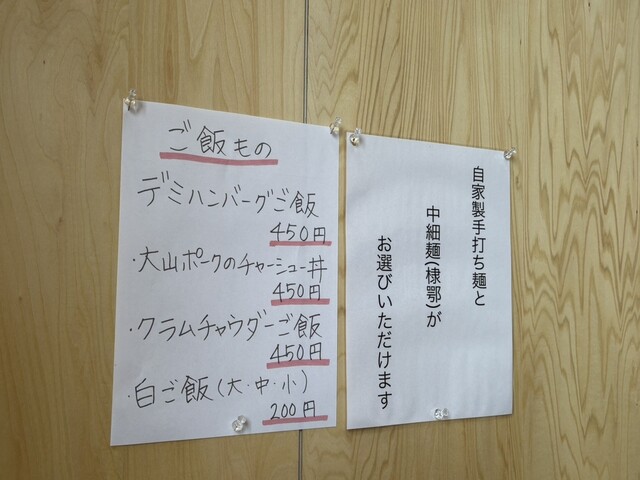 ご飯もの
デミハンバーグご飯
450円
・大山ポークのチャーシュー丼
450円
・クラムチャウダーご飯
450円
・白ご飯(大・中・小)
200円
自家製手打ち麺と
中細麺(棣鄂)が
お選びいただけます